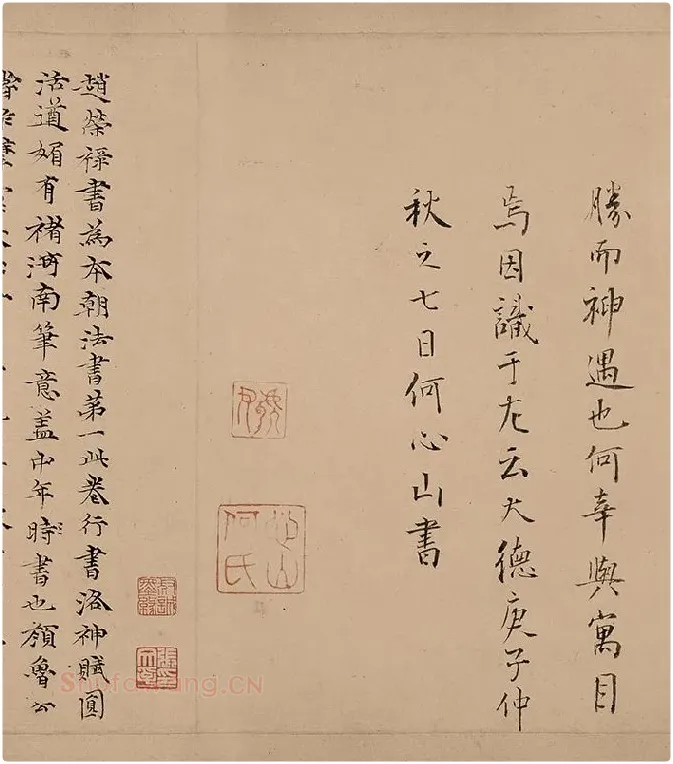 勝而神遇也何幸與寓目
焉因識于左云大德庚子仲
秋之七日何心山書
何氏心山
趙榮祿書為本朝法書第一此卷行書洛神賦圓
活遒媚有褚河南筆意蓋中年時書也顏魯公
Shufaziliang.CN